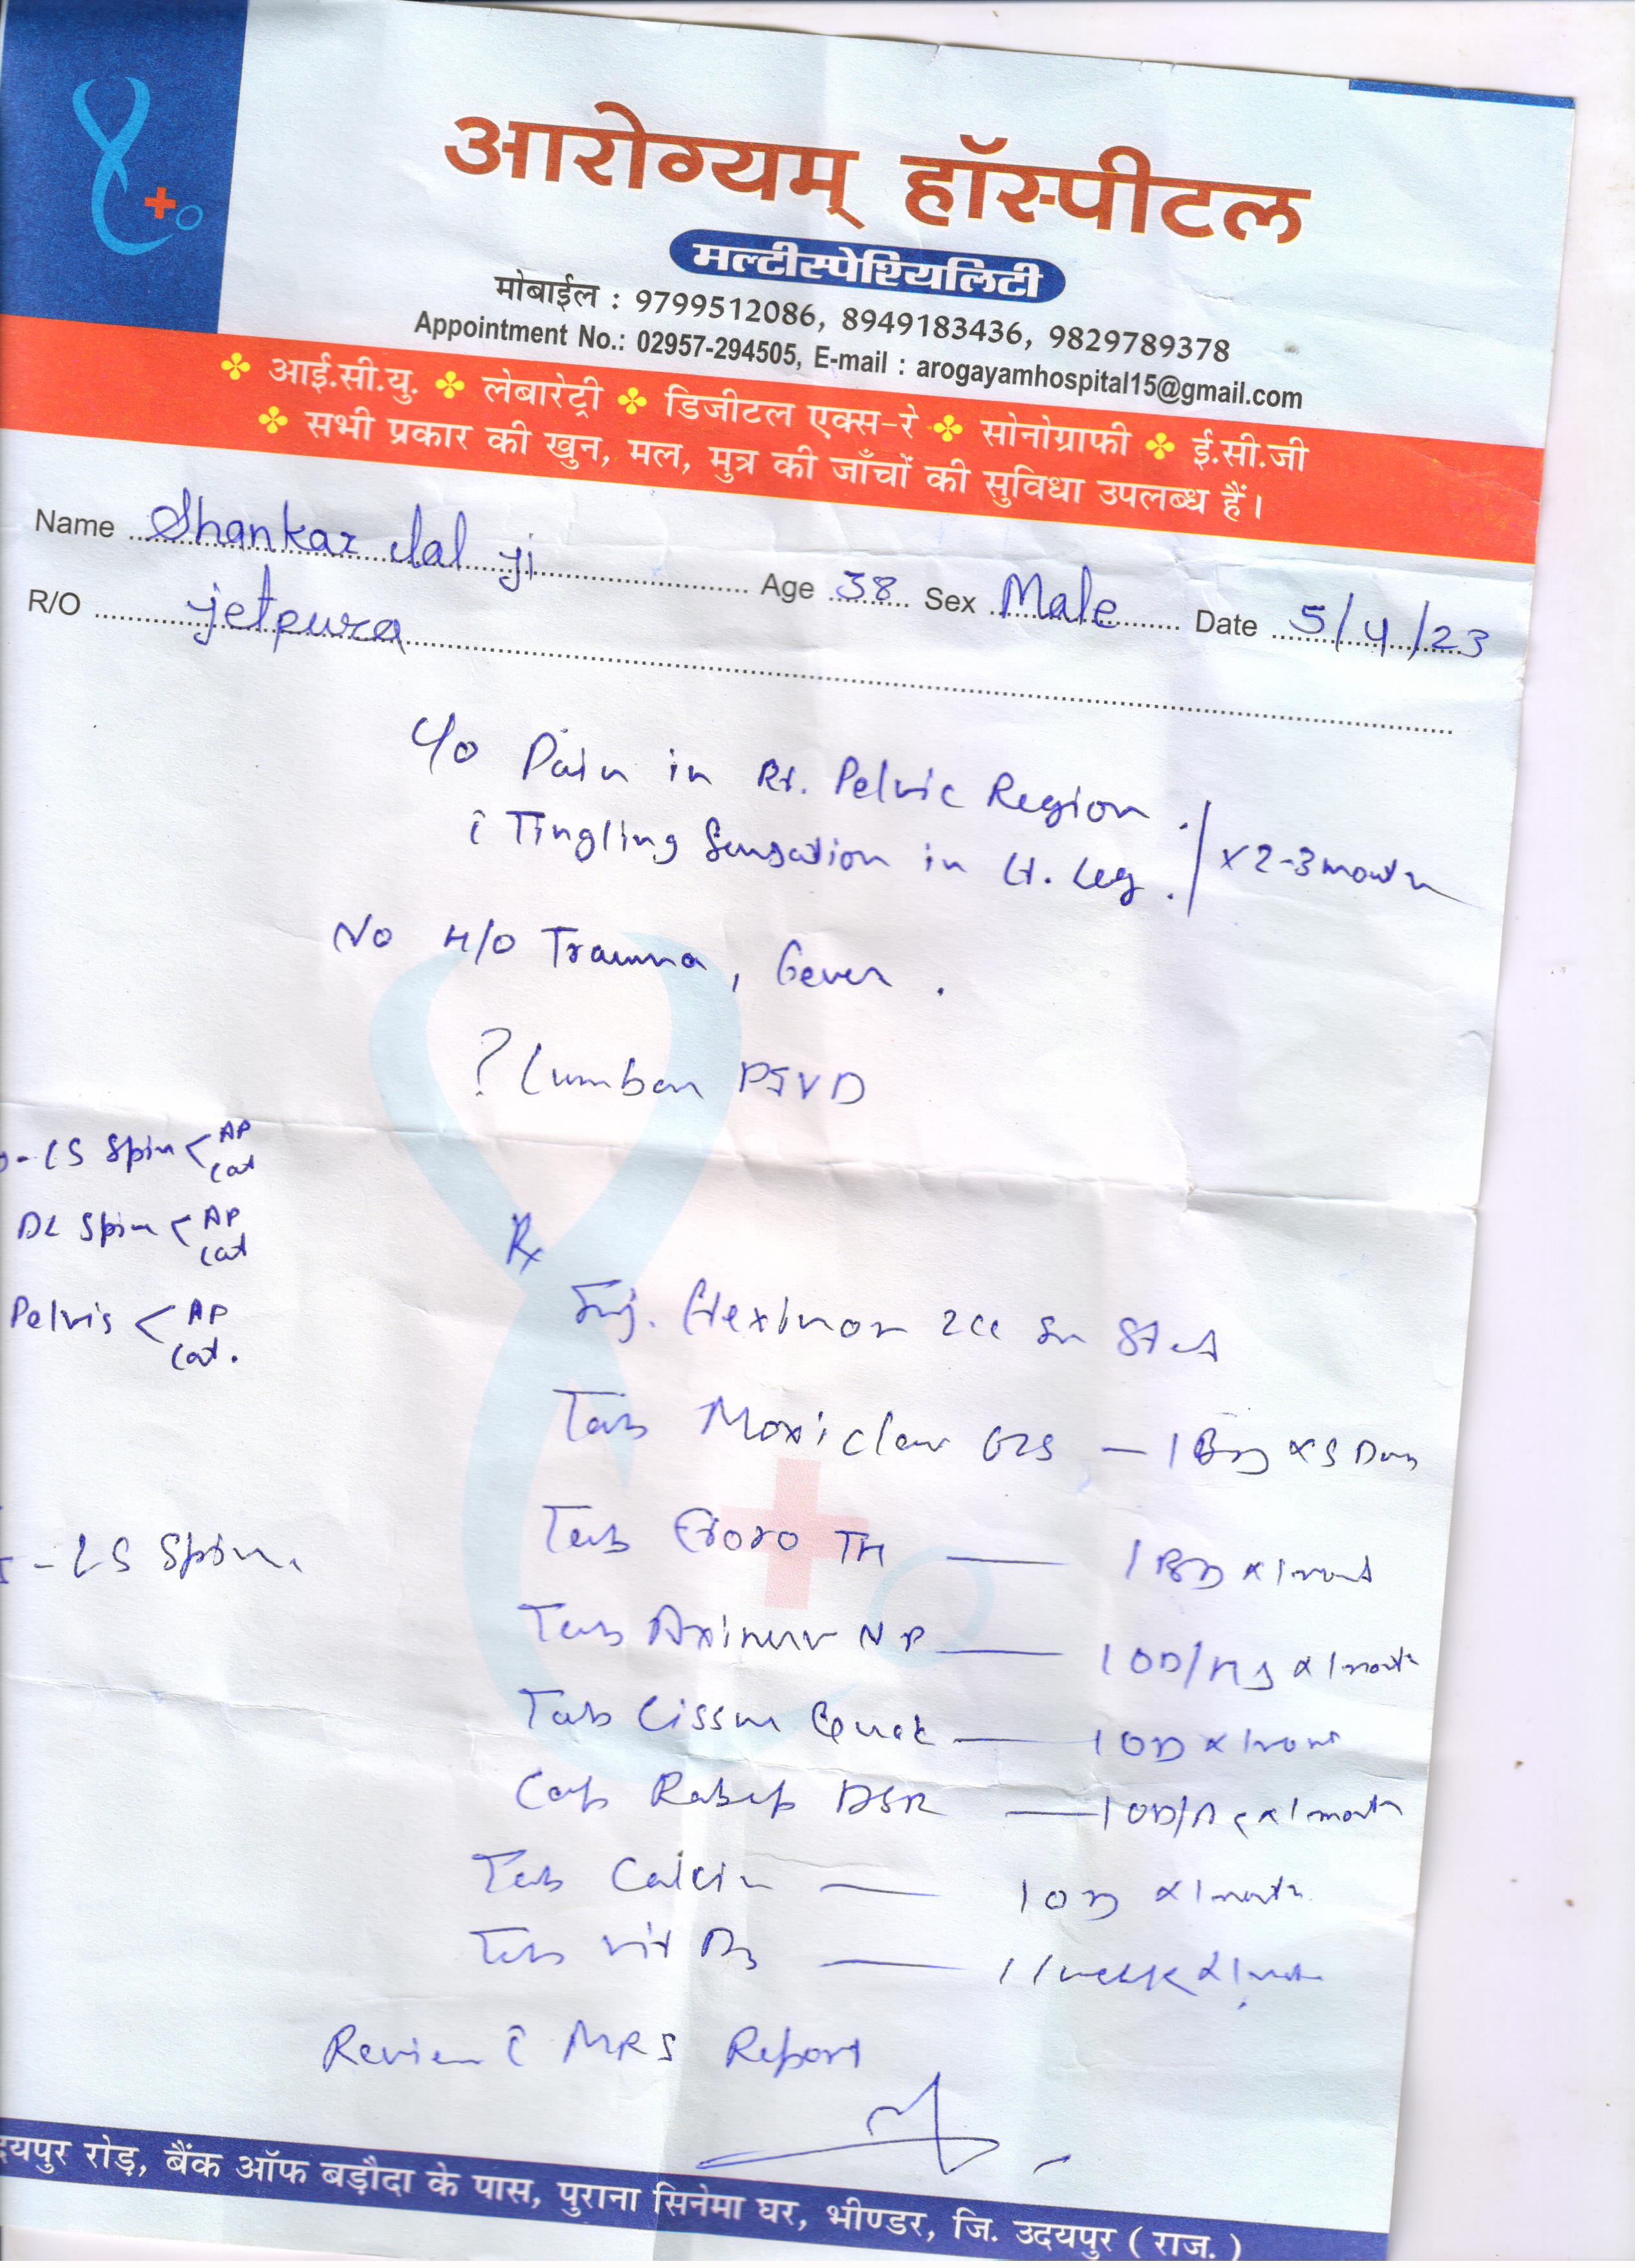 आरोग्यम् हॉस्पीटल
मल्टीस्पेश्यिलिटी
मोबाईल : 9799512086, 8949183436, 9829789378
Appointment No.: 02957-294505, E-mail : arogayamhospital15@gmail.com
आई.सी.यु. लेबारेट्री डिजीटल एक्स-रे सोनोग्राफी ई.सी.जी
सभी प्रकार की खुन, मल, मुत्र की जाँचों की सुविधा उपलब्ध हैं।
Name Shankar lal ji Age 38 Sex Male Date 5/4/23
R/O jetpura
C/o Pain in Rt. Pelvic Region.
c̄ Tingling Sensation in Lt. Leg. x 2-3 month
No H/O Trauma, Fever.
? Lumbar PIVD
LS Spine < AP Lat
DL Spine < AP Lat
Pelvis < AP Lat.
Rx
Inj. 2cc Im Stat
Tab Moxiclav 625 — 1 BD x 5 Days
- LS Spine.
Tab TH — 1 BD x 1 month
Tab NP — 1 OD/HS x 1 month
Tab — 1 OD x 1 month
Cap DSR — 1 OD/AC x 1 month
Tab — 1 OD x 1 month
Tab Vit D3 — 1/week x 1 month
Review c̄ MRI Report
रोड़, बैंक ऑफ बड़ौदा के पास, पुराना सिनेमा घर, भीण्डर, जि. उदयपुर ( राज. )